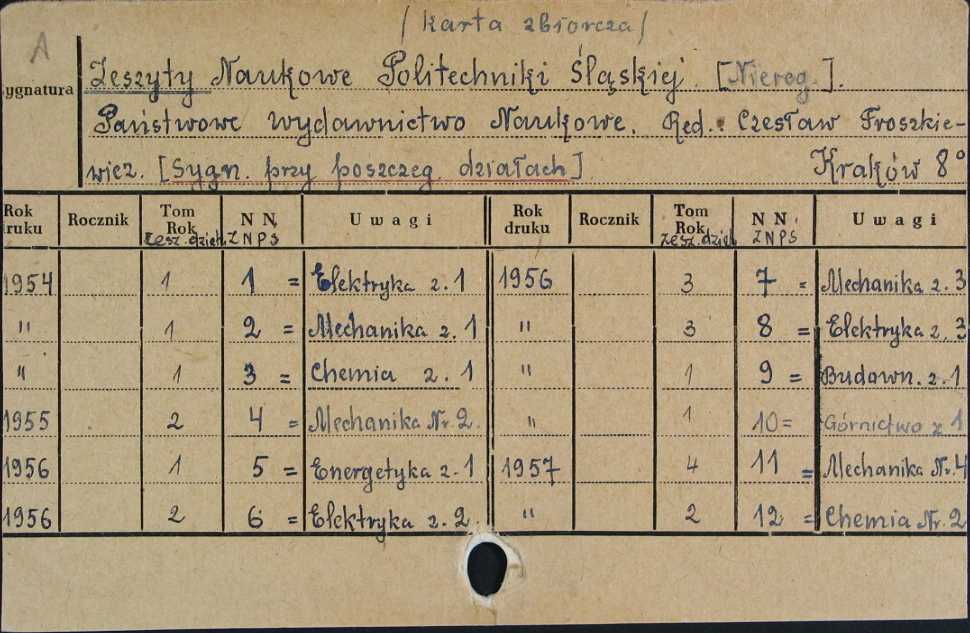 /karta zbiorcza/
A
ygnatura
Zeszyty Naukowe Politechniki Śląskiej. [Niereg.].
Państwowe Wydawnictwo Naukowe. Red.: Czesław Froszkie-
wicz. [Sygn. przy poszczeg. działach]. Kraków 8°
Rok druku Rocznik Tom Rok N N. Uwagi Rok druku Rocznik Tom Rok N N. Uwagi
zesz. dział. ZNPS zesz. dział ZNPS
1954 1 1 = Elektryka z. 1 1956 3 7 = Mechanika z. 3
" 1 2 = Mechanika z. 1 " 3 8 = Elektryka z. 3
" 1 3 = Chemia z. 1 " 1 9 = Budown. z. 1
1955 2 4 = Mechanika Nr. 2. " 1 10 = Górnictwo z 1
1956 1 5 = Energetyka z. 1 1957 4 11 = Mechanika Nr. 4
1956 2 6 = Elektryka z. 2 " 2 12 = Chemia Nr. 2